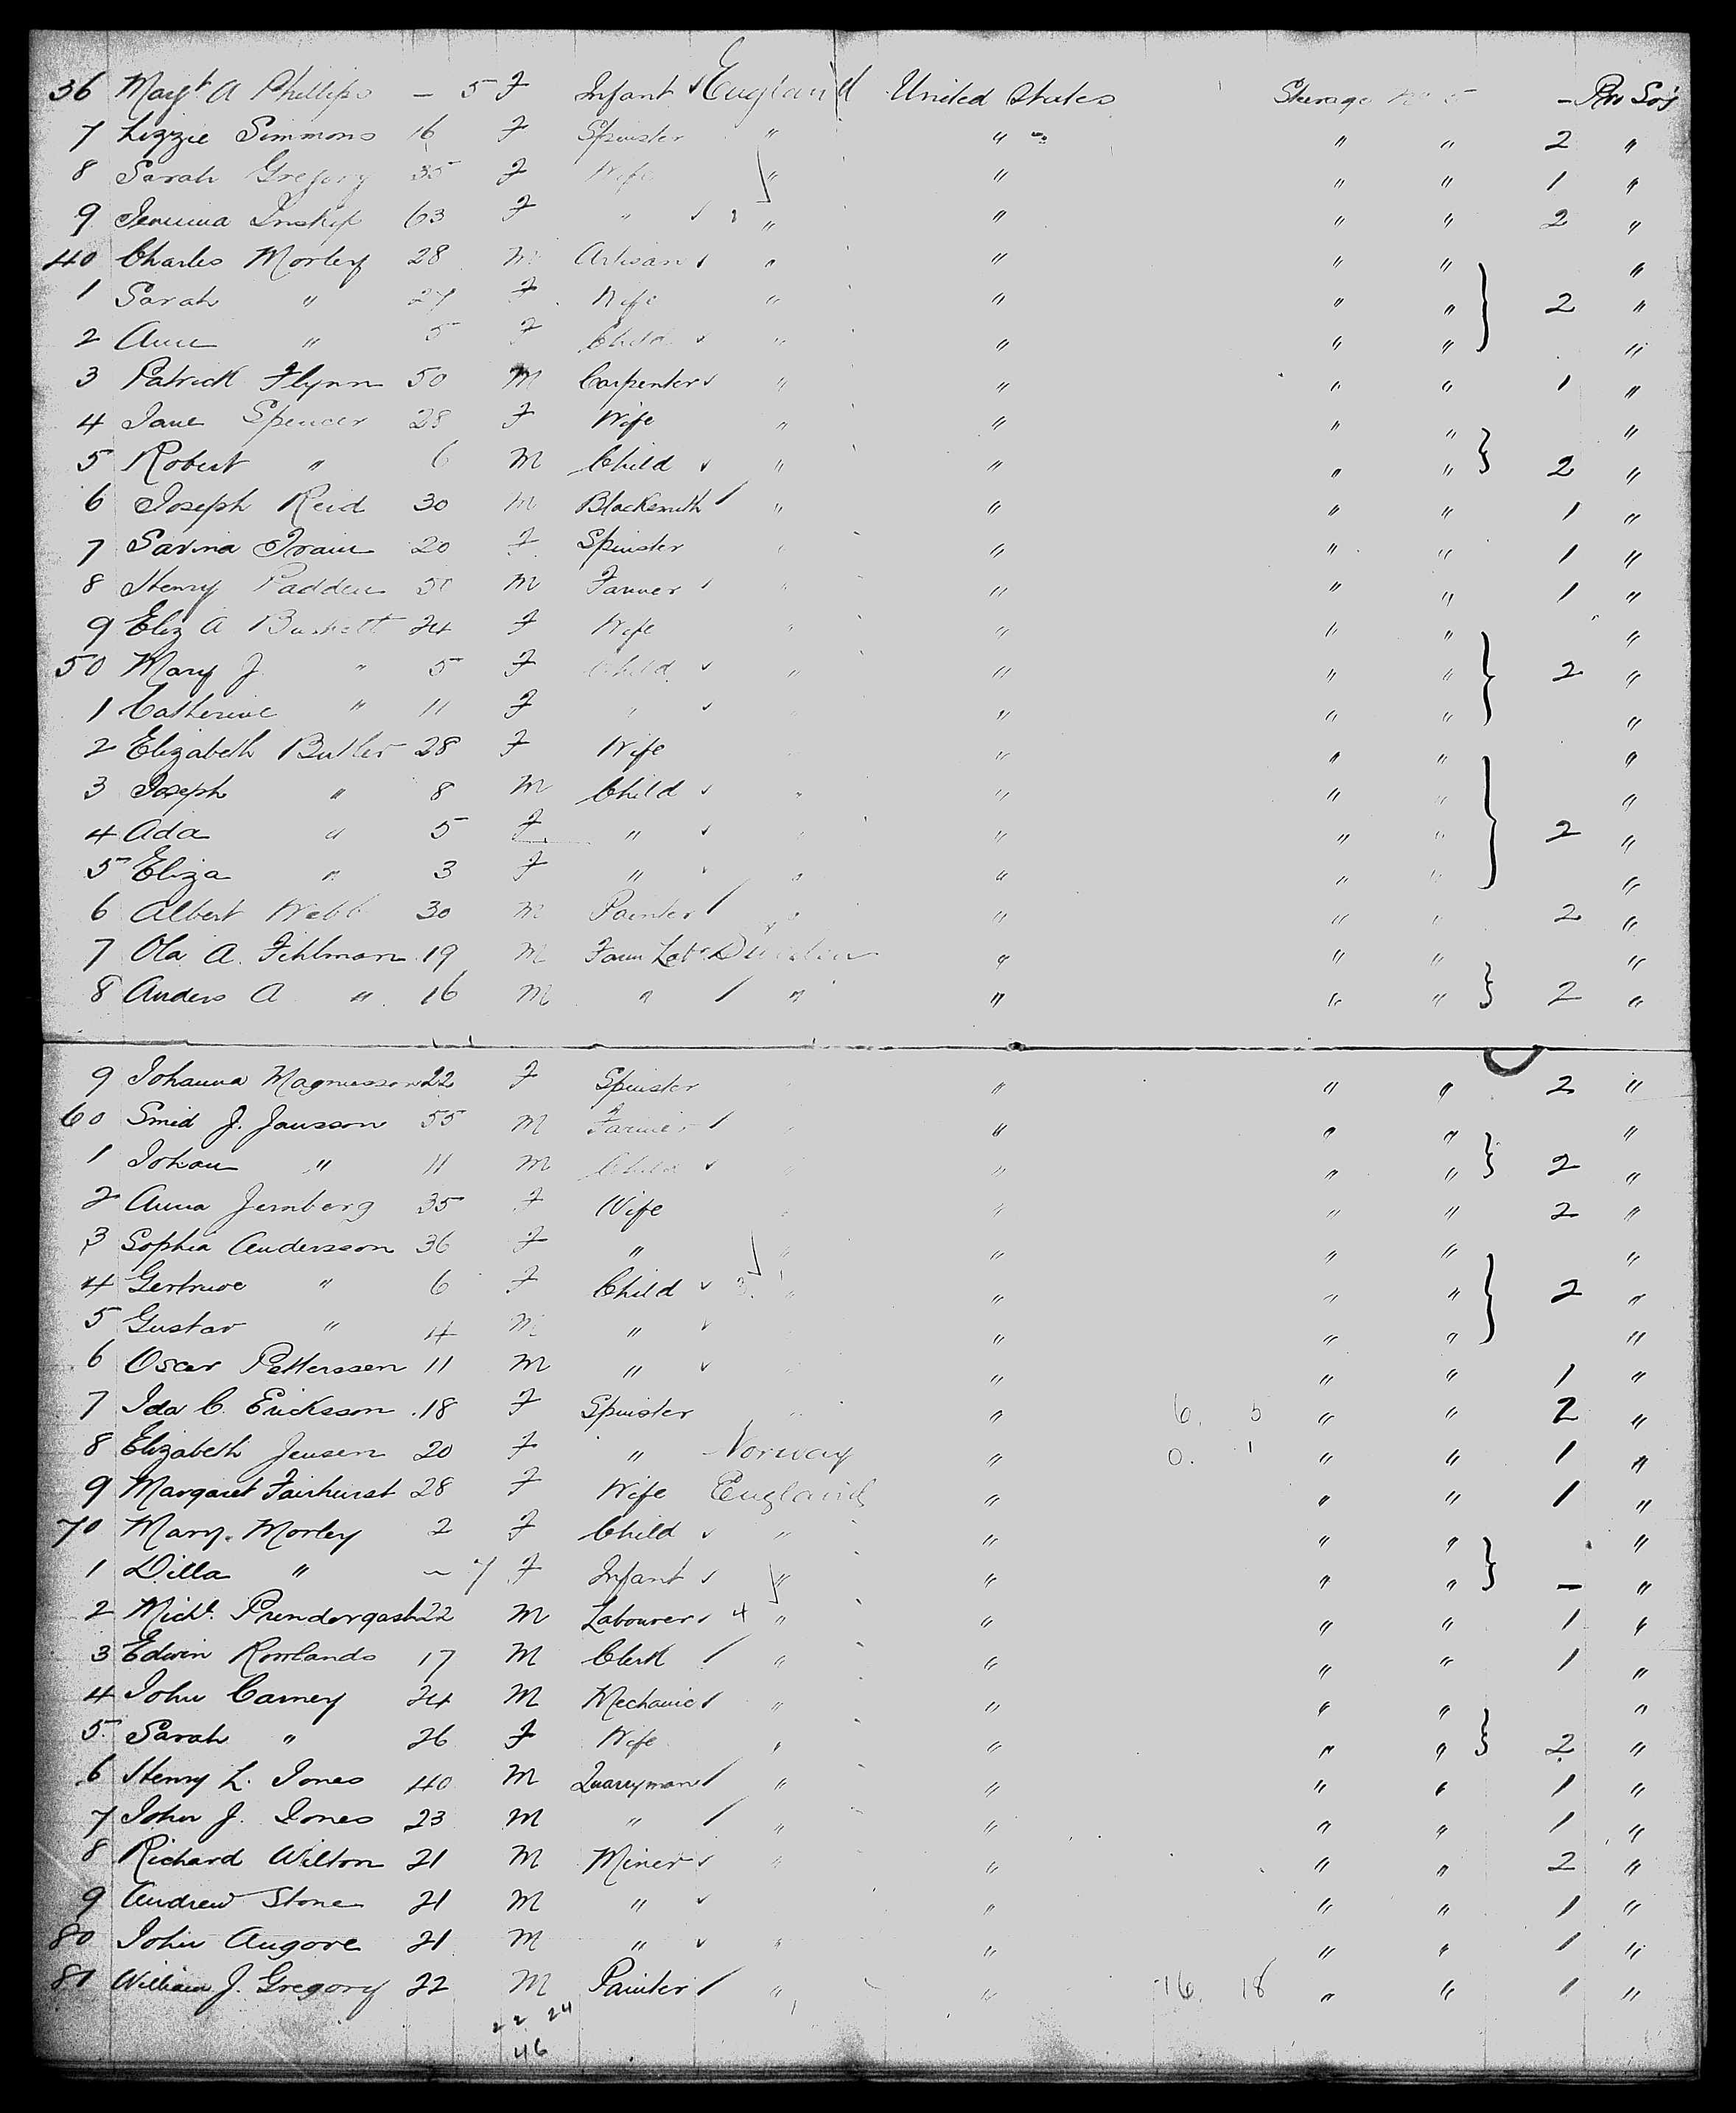 36 Margt A Phillips — 5 F Infant England United States Steerage No 5 — Pro Soj
7 Lizzie Simmons 16 F Spinster " " " " 2 "
8 Sarah Gregory 35 F Wife " " " " 1 "
9 Jemima Inskip 63 F " " " " " 2 "
40 Charles Morley 28 M Artisan " " " " "
1 Sarah " 27 F Wife " " " " 2 "
2 Ann " 5 F Child " " " " "
3 Patrick Flynn 50 M Carpenter " " " " 1 "
4 Jane Spencer 28 F Wife " " " " "
5 Robert " 6 M Child " " " " 2 "
6 Joseph Reid 30 M Blacksmith " " " " 1 "
7 Savina 20 F Spinster " " " " 1 "
8 Henry Padden 50 M Farmer " " " " 1 "
9 Eliz A 24 F Wife " " " " "
50 Mary J " 5 F Child " " " " 2 "
1 Catherine " 11 F " " " " "
2 Elizabeth Butler 28 F Wife " " " "
3 Joseph " 8 M Child " " " " "
4 Ada " 5 F " " " " " 2 "
5 Eliza " 3 F " " " " " "
6 Albert Webb 30 M Painter " " " " 2 "
7 Ola A. Fihlman 19 M Farm Labr Sweden " " " "
8 Anders A " 16 M " " " " " 2 "
9 Johanna Magnusson 22 F Spinster " " " 2 "
60 Smid J. Jansson 55 M Farmer " " " "
1 Johan " 11 M Child " " " 2 "
2 Anna Jernberg 35 F Wife " " " 2 "
3 Sophia Andersson 36 F " " " " " "
4 Gertrude " 6 F Child 3 " " " " 2 "
5 Gustav " 4 M " " " " "
6 Oscar Petterssen 11 M " " " " 1 "
7 Ida C. Ericksson 18 F Spinster " " 6. 5 " " 2 "
8 Elizabeth Jensen 20 F " Norway " 0. 1 " " 1 "
9 Margaret Fairhurst 28 F Wife England " " " 1 "
70 Mary Morley 2 F Child " " " " "
1 Dilla " — 7 F Infant " " " " — "
2 Michl. Prendergast 22 M Labourer 4 " " " " 1 "
3 Edwin Rowlands 17 M Clerk " " " " 1 "
4 John Carney 24 M Mechanic " " " " "
5 Sarah " 26 F Wife " " " " 2 "
6 Henry L. Jones 40 M Quarryman " " " " 1 "
7 John J. Jones 23 M " " " " " 1 "
8 Richard Wilton 21 M Miner " " " " 2 "
9 Andrew Stone 21 M " " " " 1 "
80 John Angove 21 M " " " " " 1 "
81 William J. Gregory 22 M Painter " " 16. 18 " " 1 "
22 24
46